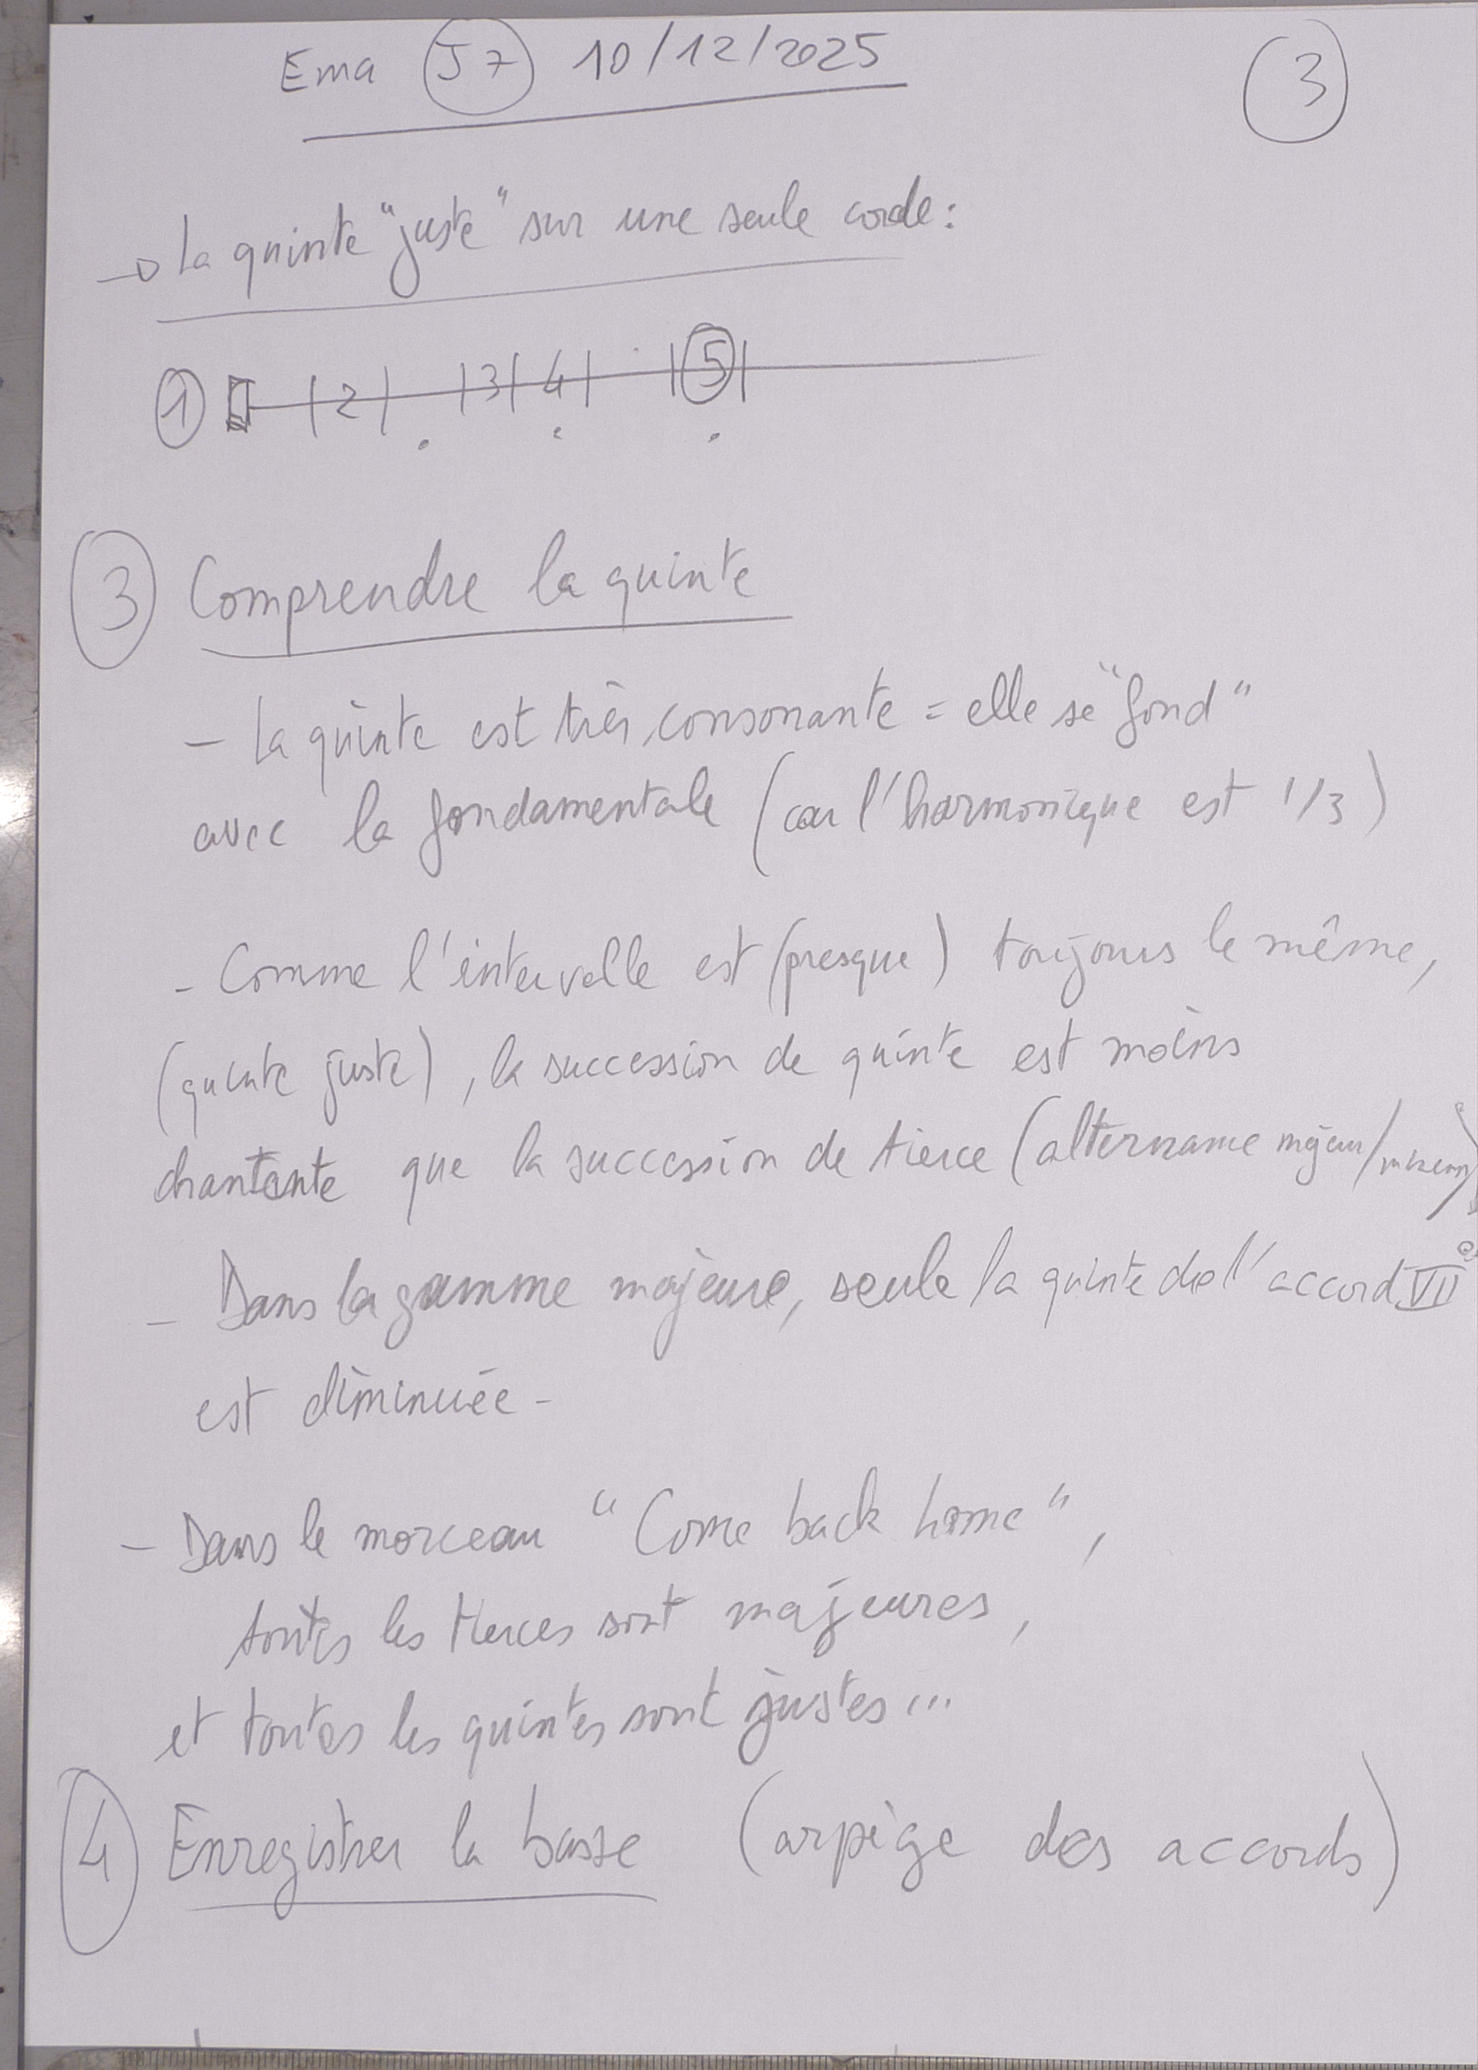 Ema J7 10/12/2025
3
→ La quinte "juste" sur une seule corde :
1 |2| |3|4| |5|
3 Comprendre la quinte
- La quinte est très consonante = elle se "fond"
avec la fondamentale (car l'harmonique est 1/3)
- Comme l'intervalle est (presque) toujours le même,
(quinte juste), la succession de quinte est moins
chantante que la succession de tierce (alternance majeur/mineur)
- Dans la gamme majeure, seule la quinte de l'accord VII
est diminuée -
- Dans le morceau "Come back home",
toutes les tierces sont majeures,
et toutes les quintes sont justes...
4 Enregistrer la basse (arpège des accords)